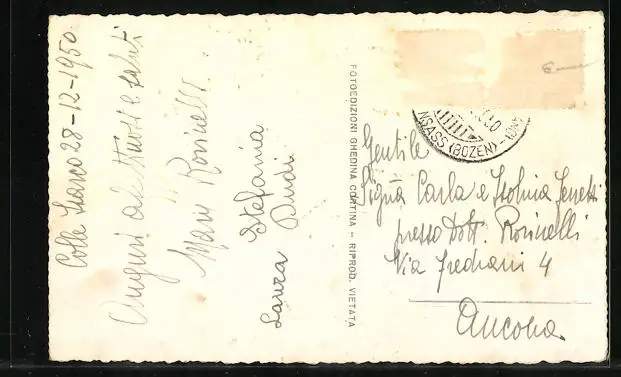 Colle Isarco 28-12-1950
Auguri a e saluti
Mary Rosinelli
Stefania
Laura Dudi
FOTOEDIZIONI GHEDINA CORTINA - RIPROD. VIETATA
NSASS (BOZEN)
Gentile
Sig.na Carla e
presso Dott. Rosinelli
Via Frediani 4
Ancona.